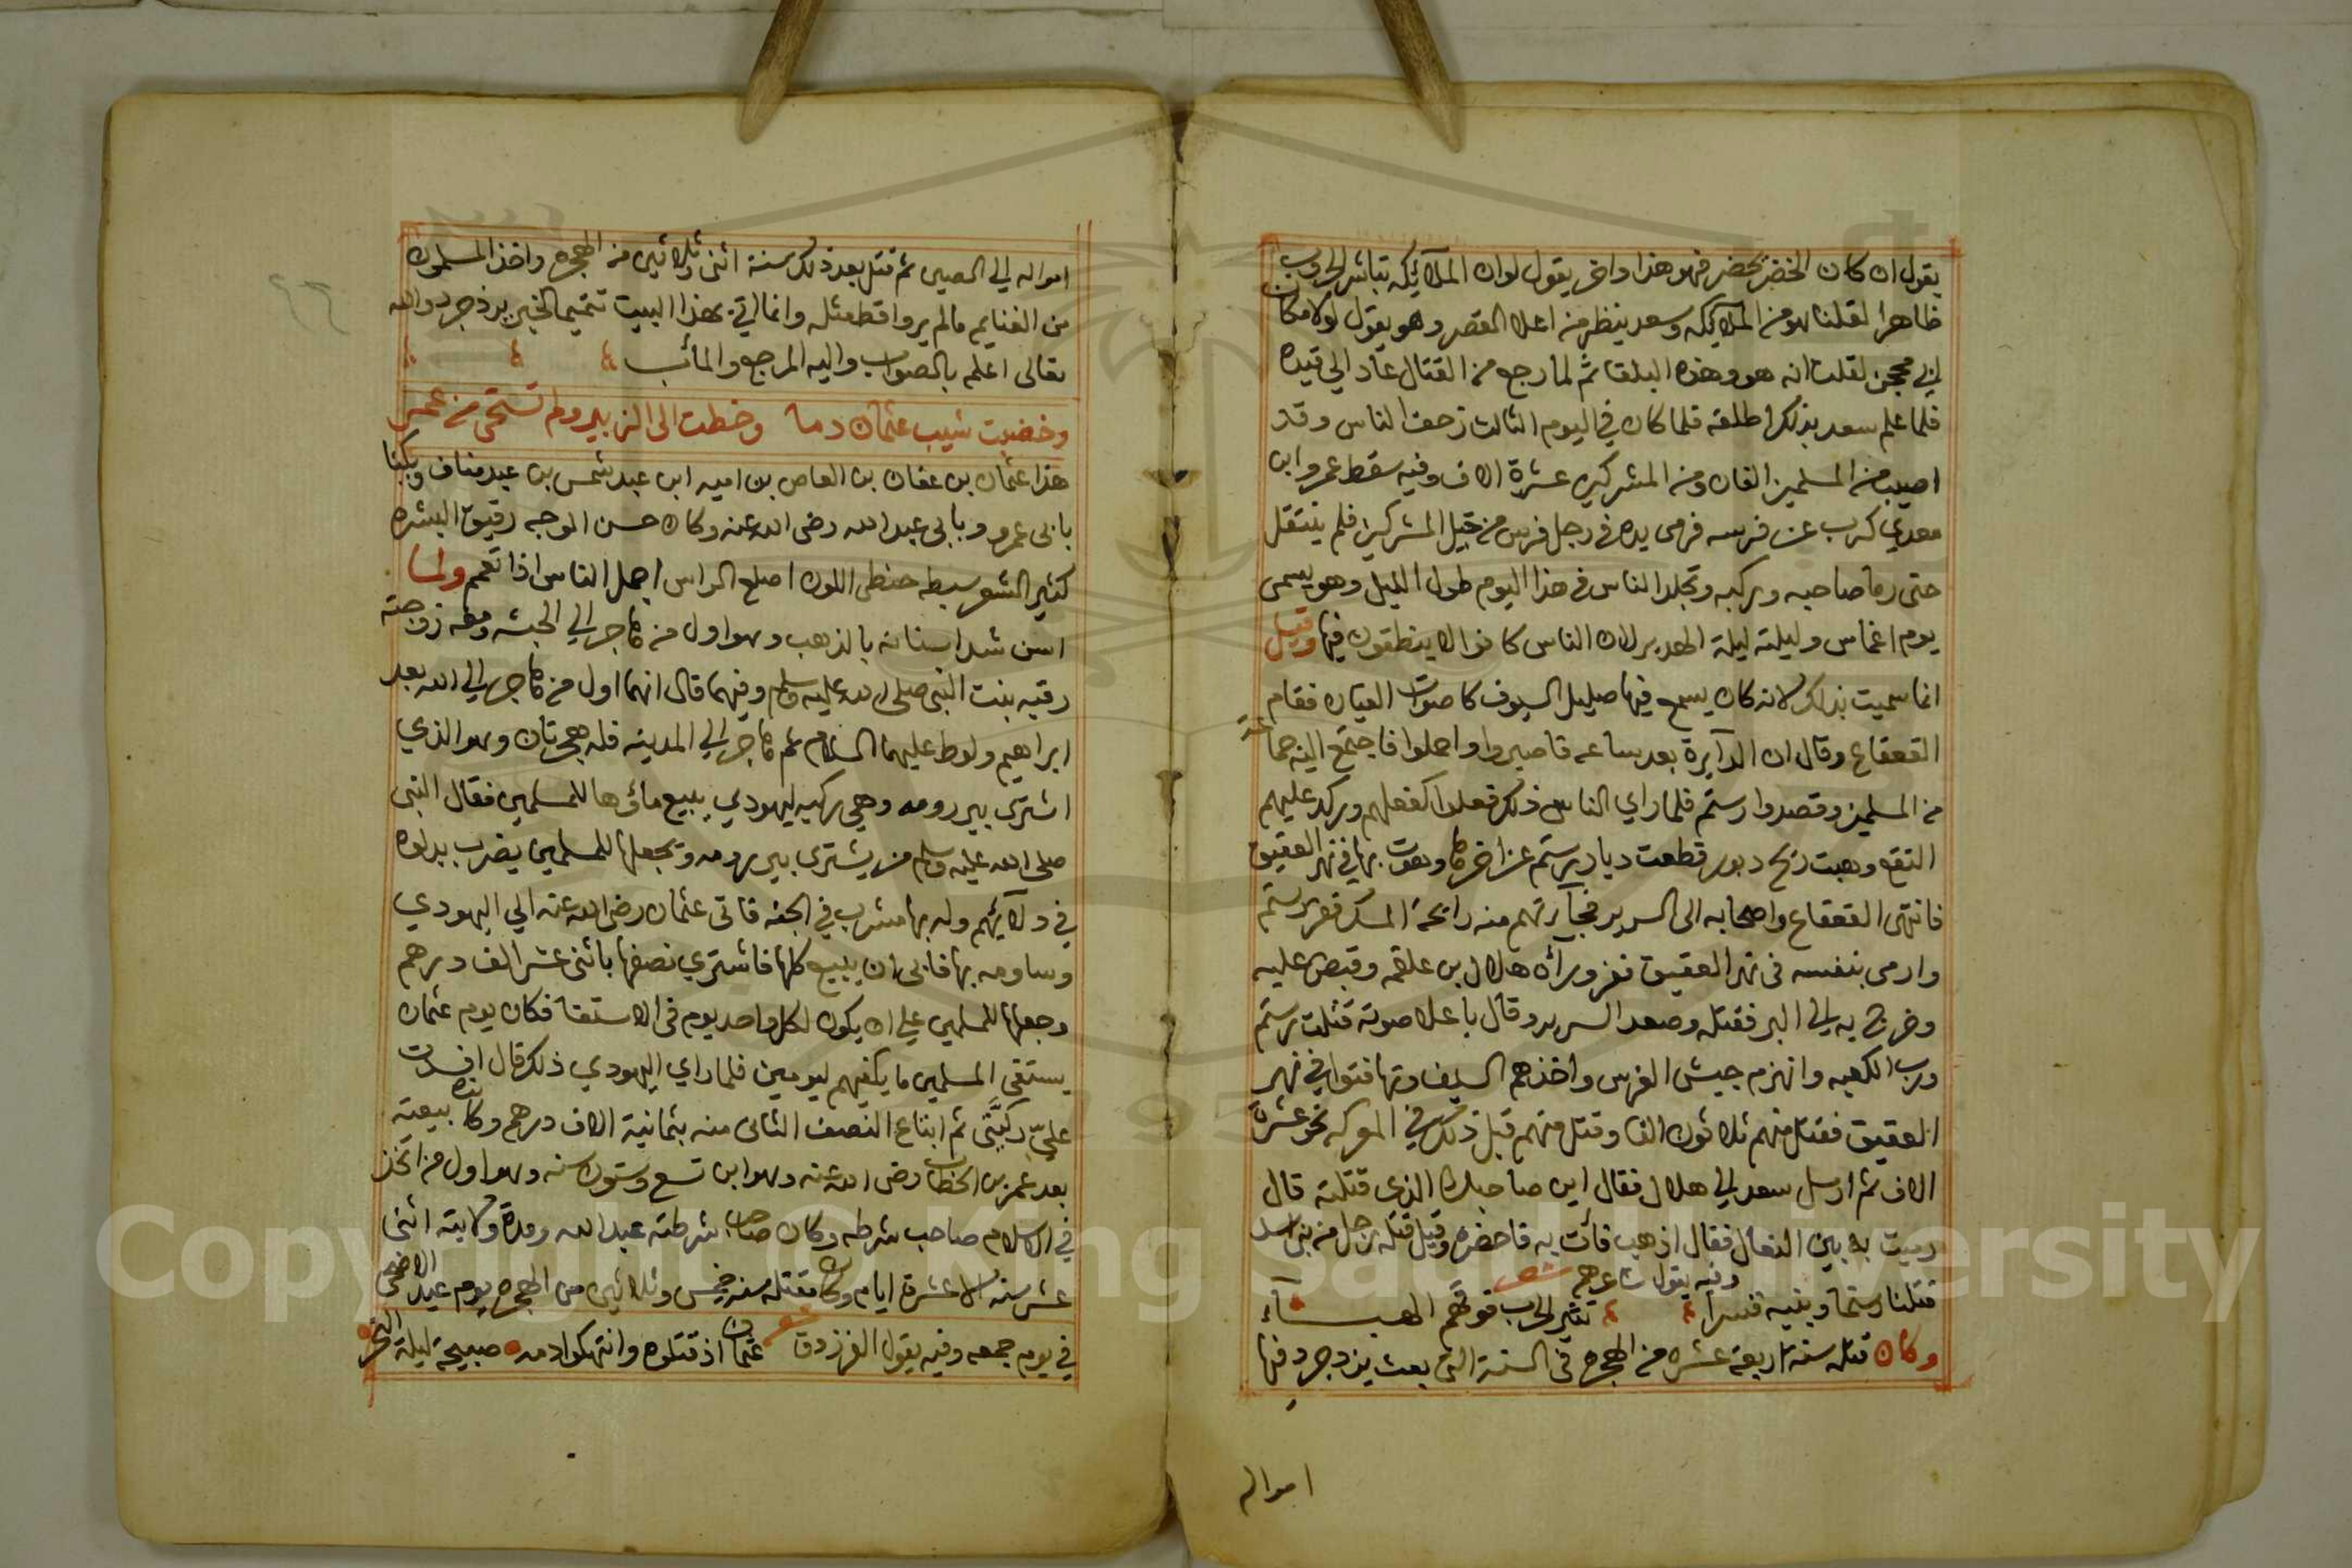 يقول ان كان الخضر يحضر فهو هذا واخر يقول لوان الملآيكه تباشر الحروب
ظاهرا لقلنا هو من الملآيكه وسعد ينظر من اعلا القصر وهو يقول لولا مكان
ابي محجن لقلت انه هو وهذه البلقا ثم لما رجع من القتال عاد الي قيده
فلما علم سعد بذلك اطلقه فلما كان في اليوم الثالث زحف الناس وقد
اصيب من المسلمين الفان ومن المشركين عشرة الاف وفيه سقط عمرو ابن
معدي كرب عن فرسه فرمى يده في رجل فرس من خيل المشركين فلم ينتقل
حتى رما صاحبه وركبه وتجلد الناس في هذا اليوم طول الليل وهو يسمى
يوم اغماس وليلته ليلة الهدير لان الناس كانوا لا ينطقون فيها وقيل
انما سميت بذلك لانه كان يسمع فيها صليل السيوف كا صوات القيان فقام
القعقاع وقال ان الدآيرة بعد ساعه فاصبروا واحملوا فاجتمع اليه جماعة
من المسلمين وقصدوا رستم فلما راي الناس ذلك فعلوا كفعلهم وركد عليهم
النقع وهبت ريح دبور قطعت ديار رستم عن اخرها وهوت بها في نهر العقيق
فانتهى القعقاع واصحابه الى السرير فجآرتهم منه رايحة المسك ففر رستم
وارمى بنفسه في نهر العقيق ففر ورآه هلال بن علقمه وقبض عليه
وخرج به الي البر فقتله وصعد السرير وقال باعلا صوته قتلت رستم
ورب الكعبه وانهزم جيش الفرس واخذهم السيف وتهافتوا في نهر
العقيق فقتل منهم ثلاثون الفا وقتل منهم قبل ذلك في المعركه نحو عشرة
الاف ثم ارسل سعد الي هلال فقال اين صاحبك الذي قتلته قال
رميت به بين النعال فقال اذهب فائت به فاحضره وقيل قتله رجل من بني اسد
وفيه يقول شاعرهم شعر
قتلنا رستما وبنيه قسرا تثير الحرب فوقهم الهبــآء
وكان قتله سنة اربعة عشره من الهجره في السنة التي بعث يزدجرد فيها
امواله
امواله الي الصين ثم قتل بعد ذلك سنة اثنى وثلاثين من الهجره واخذ المسلمون
من الغنايم مالم يروا قط مثله وانما اتي بهذا البيت تتميما لخبر يزدجرد والله
تعالى اعلم بالصواب واليه المرجع والمأئب
وخضبت شيب عثمان دما وخطت الى الزبير ولم تستحى من عمر
هذا عثمان بن عفان بن العاص بن اميه ابن عبد شمس بن عبد مناف ويكنا
بابى عمرو وبابى عبد الله رضى الله عنه وكان حسن الوجه رقيق البشره
كثير الشعر سبطه حنطى اللون اصلع الراس اجمل الناس اذا تعمم ولما
اسن شد اسنانه بالذهب وهو اول من هاجر الي الحبشه ومعه زوجته
رقيه بنت النبى صلى الله عليه وسلم وفيهما قال انهما اول من هاجر الي الله بعد
ابراهيم ولوط عليهما السلام ثم هاجر الي المدينه فله هجرتان وهو الذي
اشترى بير رومه وهي ركيه ليهودي يبيع ماؤها للمسلمين فقال النبى
صلى الله عليه وسلم من يشترى بير رومه ويجعلها للمسلمين يضرب بدلوه
في دلآئهم وله بها مشرب في الجنه فاتى عثمان رضى الله عنه الي اليهودي
وساومه بها فابى ان يبيع كلها فاشتري نصفها باثنى عشر الف درهم
وجعلها للمسلمين علي ان يكون لكل واحد يوم في الاستقا فكان يوم عثمان
يستقى المسلمين ما يكفيهم ليومين فلما راي اليهودي ذلك قال افسدت
علىّ ركيَّتى ثم ابتاع النصف الثانى منه بثمانية الاف درهم وكانت بيعته
بعد عمر بن الخطاب رضى الله عنه وهو ابن تسع وستون سنه وهو اول من اتخذ
في الاسلام صاحب شرطه وكان صاحب شرطته عبد الله ومدة ولايته اثنى
عشر سنه الا عشرة ايام وكان مقتله سنة خمس وثلاثين من الهجره يوم عيد الاضحى
في يوم جمعه وفيه يقول الفرزدق شعر عثمان اذ قتلوه وانتهكوا دمه صبيحة ليلة النحر